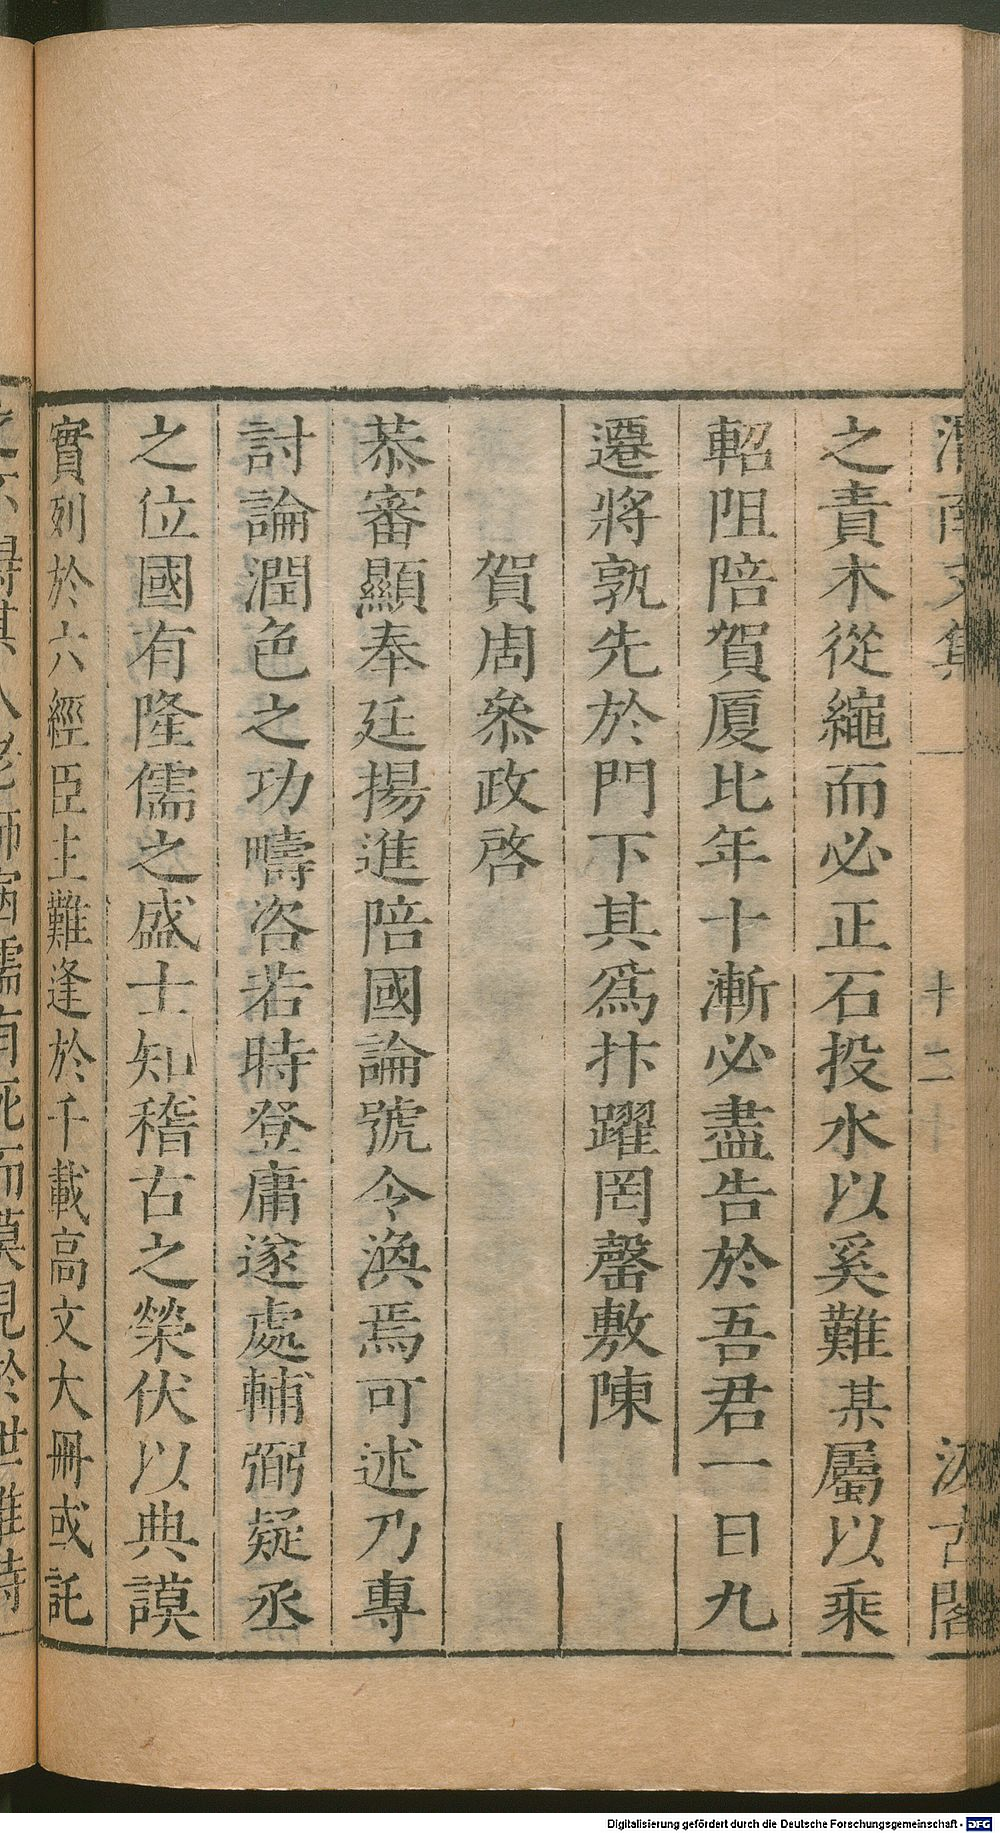 渭南文集 十二 十 汲古閣
之責木從繩而必正石投水以奚難某屬以乘
軺阻陪賀厦比年十漸必盡告於吾君一日九
遷將孰先於門下其爲抃躍罔罄敷陳
賀周叅政啓
恭審顯奉廷揚進陪國論號令渙焉可述乃專
討論潤色之功疇咨若時登庸遂處輔弼疑丞
之位國有隆儒之盛士知稽古之榮伏以典謨
實列於六經臣主難逢於千載高文大冊或託
儒有死而莫見於世雖時
Digitalisierung gefördert durch die Deutsche Forschungsgemeinschaft - DFG